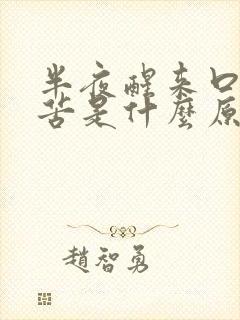 半夜醒来口
苦是什麼原
趙智勇